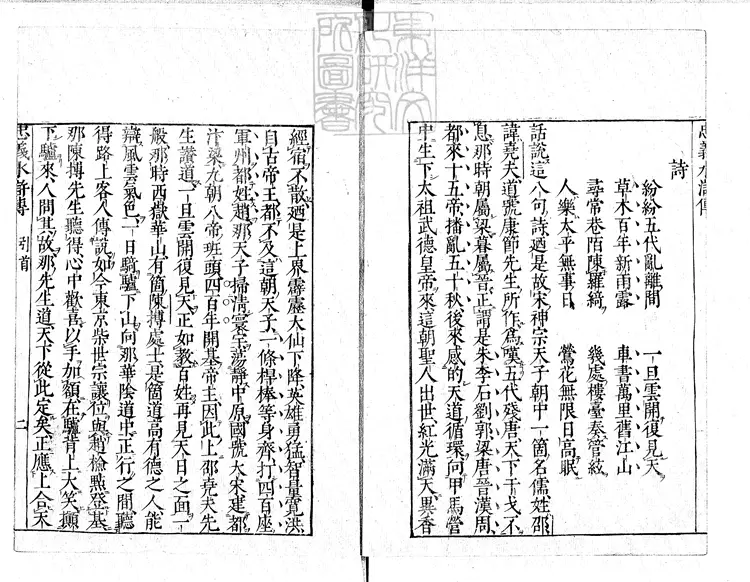 忠義水滸傳
詩
紛紛五代亂離間 一旦雲開復見天
草木百年新雨露 車書萬里舊江山
尋常巷陌陳羅綺 幾處樓臺奏管絃
人樂太平無事日 鶯花無限日高眠
話說這八句詩廼是故宋神宗天子朝中一箇名儒姓邵
諱堯夫道號康節先生所作爲嘆五代殘唐天下干戈不
息那時朝屬梁暮屬晉正謂是朱李石劉郭梁唐晉漢周
都來十五帝播亂五十秋後來感的天道循環向甲馬營
中生下太祖武德皇帝來這朝聖人出世紅光滿天異香
經宿不散廼是上界霹靂大仙下降英雄勇猛智量寬洪
自古帝王都不及這朝天子一條桿棒等身齊打四百座
軍州都姓趙那天子掃清寰宇蕩靜中原國號大宋建都
汴梁九朝八帝班頭四百年開基帝王因此上邵堯夫先
生讚道一旦雲開復見天正如教百姓再見天日之面一
般那時西嶽華山有箇陳摶處士是箇道高有德之人能
辯風雲氣色一日騎驢下山向那華陰道中正行之間聽
得路上客人傳說如今東京柴世宗讓位與趙檢點登基
那陳摶先生聽得心中歡喜以手加額在驢背上大笑攧
下驢來人問其故那先生道天下從此定矣正應上合天
忠義水滸傳 引首 二
東洋文化研究所圖書